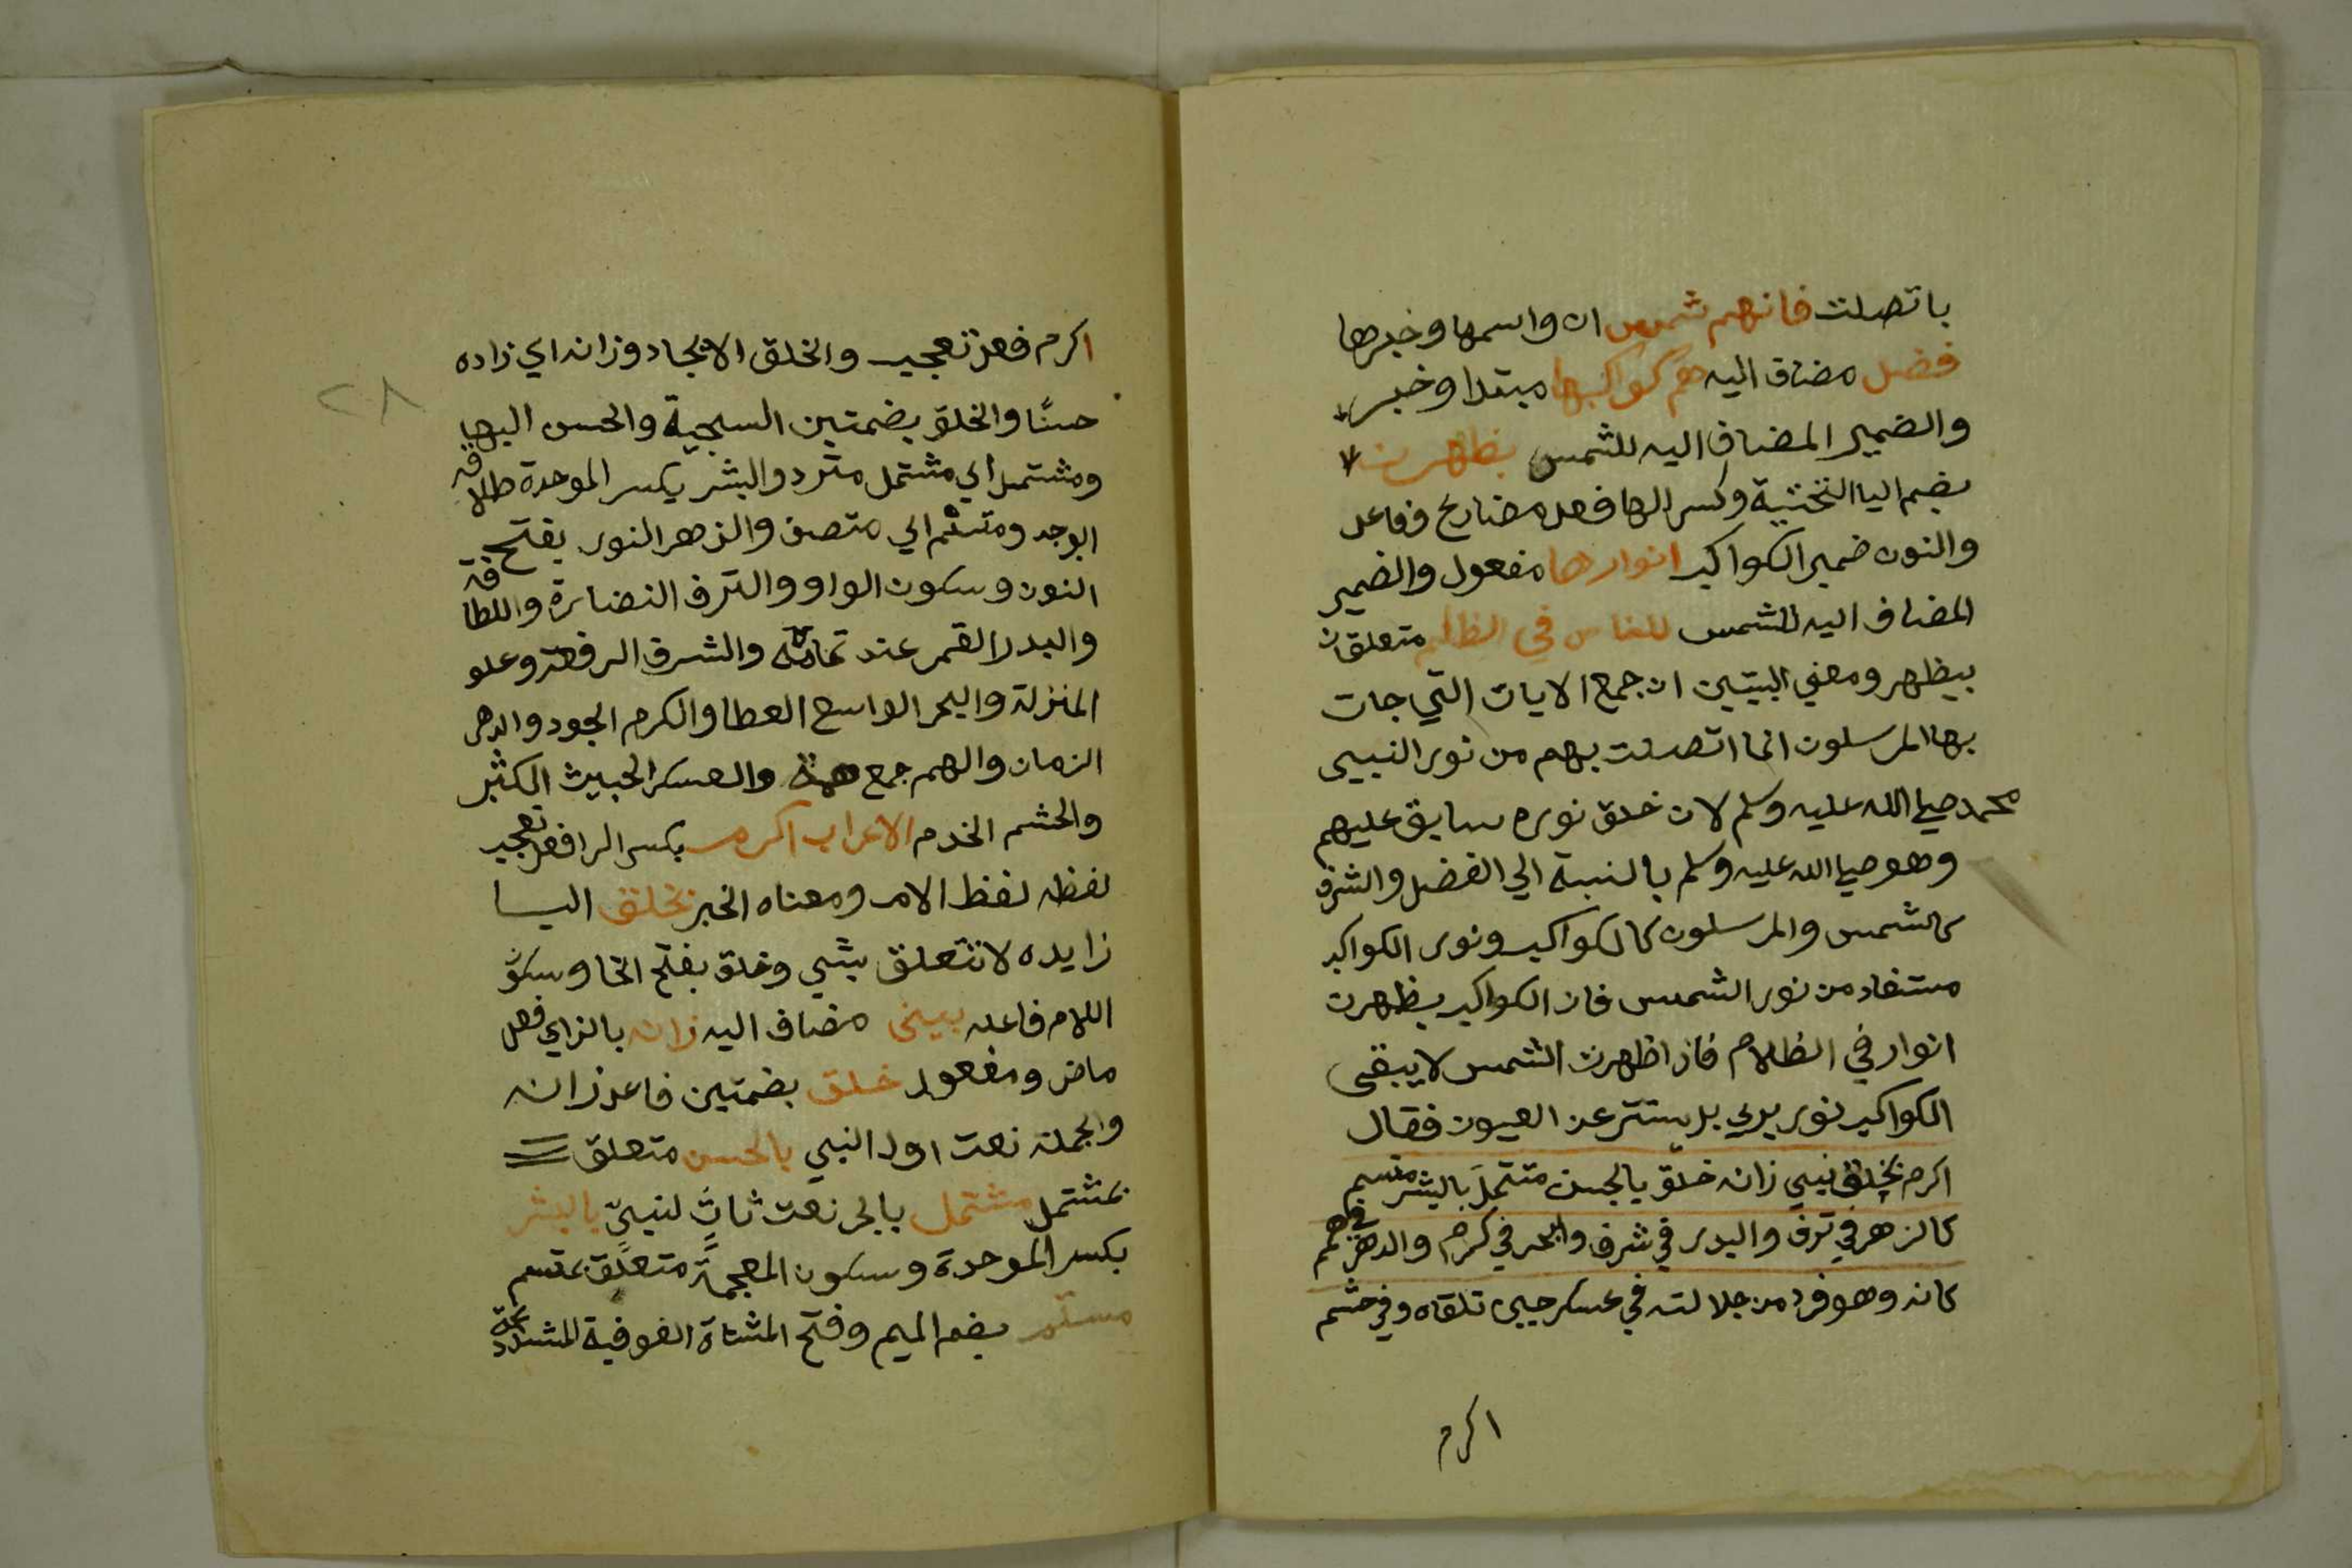 باتصلت فانهم شمس ان واسمها وخبرها
فضل مضاف اليه هم كواكبها مبتدا وخبر
والضمير المضاف اليه للشمس يظهرن
بضم اليا التحتية وكسر الها فعل مضارع وفاعل
والنون ضمير الكواكب انوارها مفعول والضمير
المضاف اليه للشمس للناس في الظلم متعلقان
بيظهر ومعني البيتين ان جمع الايات التي جات
بها المرسلون انما اتصلت بهم من نور النبي
محمد صلي الله عليه وسلم لان خلق نوره سابق عليهم
وهو صلي الله عليه وسلم بالنسبة الي الفضل والشرف
كالشمس والمرسلون كالكواكب ونور الكواكب
مستفاد من نور الشمس فان الكواكب يظهرن
انوار في الظلام فاذا ظهرت الشمس لا يبقي
الكواكب نور يري بل يستتر عن العيون فقال
اكرم بخلق نبي زانه خلق بالحسن مشتمل بالبشر متسم
كالزهر في ترف والبدر في شرف والبحر في كرم والدهر في همم
كانه وهو فرد من جلالته في عسكر حين تلقاه وفي حشم
اكرم
٢٨
اكرم فعل تعجب والخلق الايجاد وزانه اي زاده
حسنًا والخلق بضمتين السجية والحسن البها
ومشتمل اي مشتمل متزد والبشر بكسر الموحدة طلاقة
الوجه ومتسم اي متصف والزهر النور بفتح
النون وسكون الواو والترف النضارة واللطافة
والبدر القمر عند تمامه والشرف الرفعة وعلو
المنزلة والبحر الواسع العطا والكرم الجود والدهر
الزمان والهمم جمع همة والعسكر الجيش الكثير
والحشم الخدم الاعراب اكرم بكسر الرا فعل تعجب
لفظه لفظ الامر ومعناه الخبر بخلق البا
زايده لا تتعلق بشي وخلق بفتح الخا وسكون
اللام فاعله نبي مضاف اليه زانه بالزاي فعل
ماض ومفعول خلق بضمتين فاعل زانه
والجملة نعت اول النبي بالحسن متعلق
بمشتمل مشتمل بالجر نعت ثانٍ لنبيٍّ بالبشر
بكسر الموحدة وسكون المعجمة متعلق بمتسم
متسم بضم الميم وفتح المثناة الفوقية المشددة